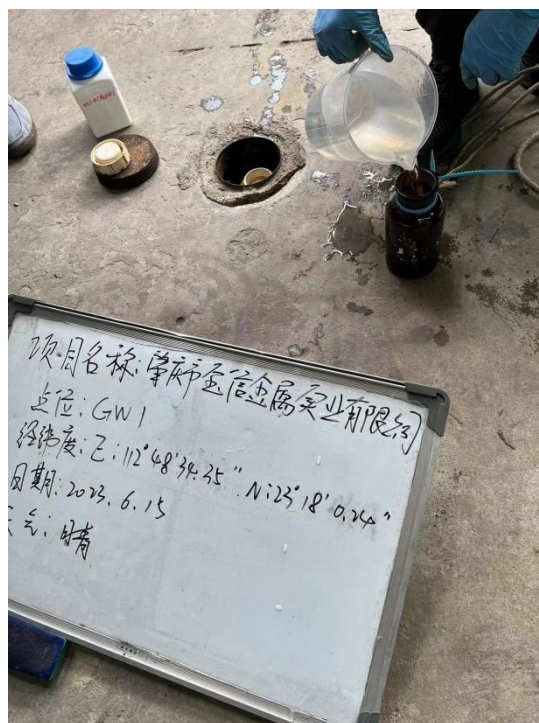 项目名称:肇庆市金信金属实业有限公司
点位:GW1
经纬度:E:112°48'34.35" N:23°18'0.24"
日期:2023.6.15
天气:晴